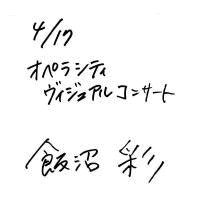 4/17
オペラシティ
ヴィジュアルコンサート
飯沼 彩